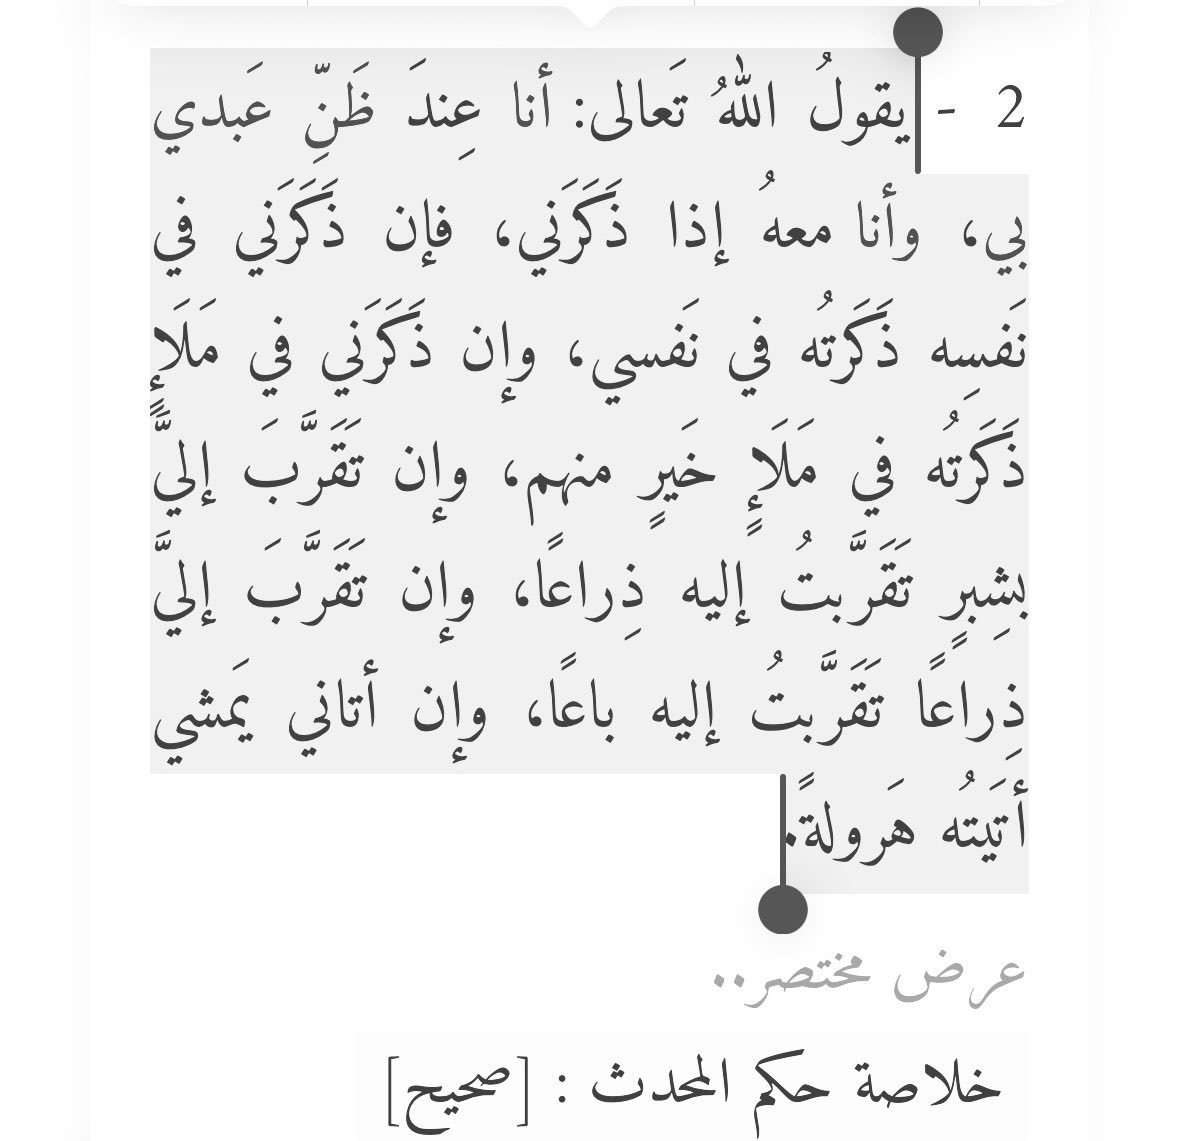 2 - يقولُ اللهُ تَعالى: أنا عِندَ ظَنِّ عَبدي
بي، وأنا معهُ إذا ذَكَرَني، فإن ذَكَرَني في
نَفسِه ذَكَرتُه في نَفسي، وإن ذَكَرَني في مَلَإٍ
ذَكَرتُه في مَلَإٍ خَيرٍ منهم، وإن تَقَرَّبَ إليَّ
بشِبرٍ تَقَرَّبتُ إليه ذِراعًا، وإن تَقَرَّبَ إليَّ
ذِراعًا تَقَرَّبتُ إليه باعًا، وإن أتاني يَمشي
أتَيتُه هَرولةً.
عرض مختصر..
خلاصة حكم المحدث : [صحيح]